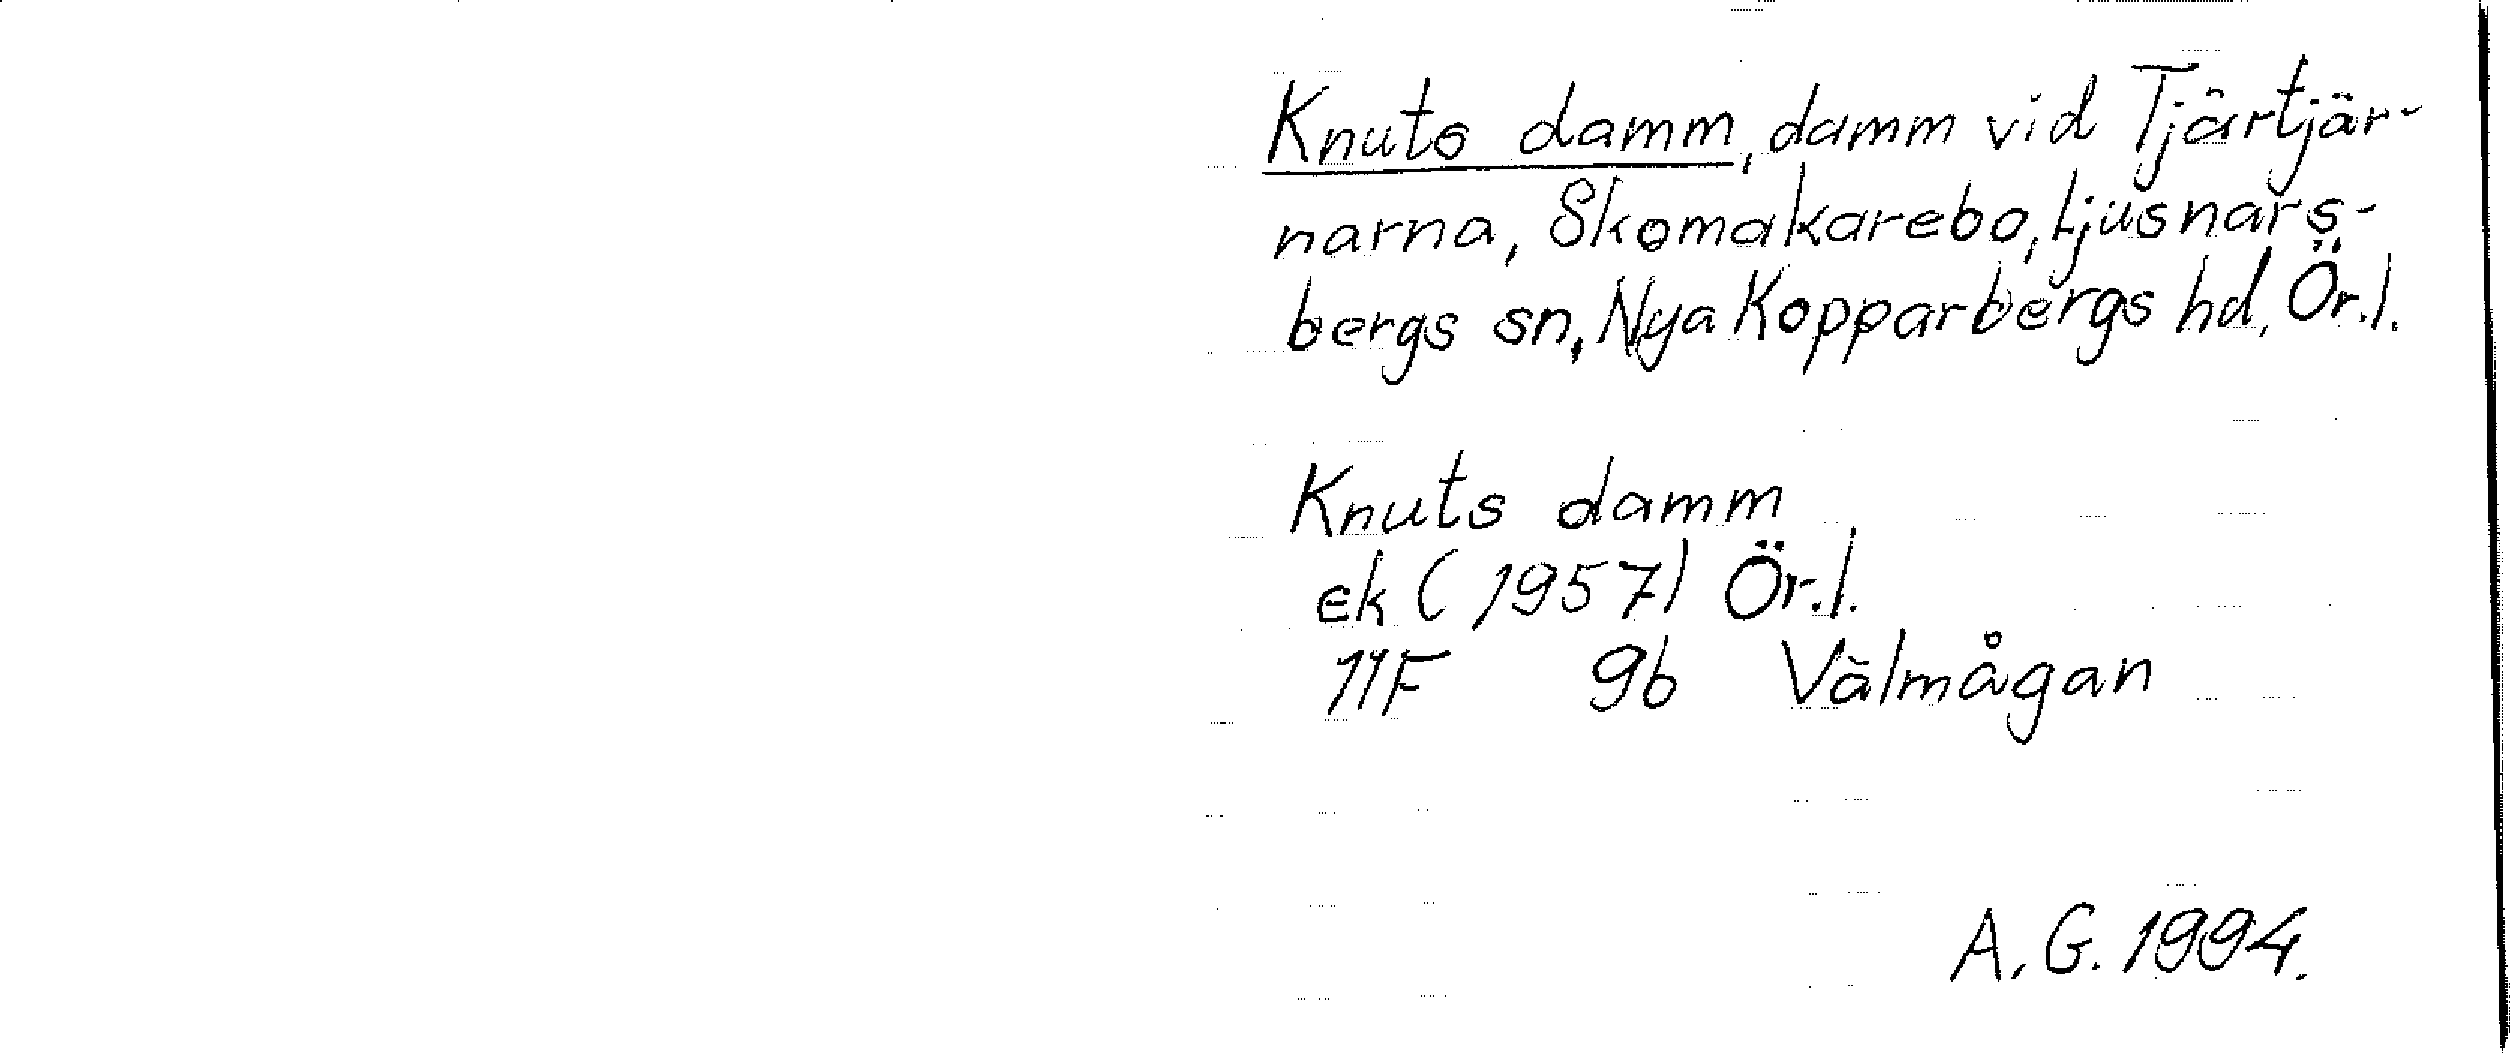 Knuts damm, damm vid Tjärtjär-
narna, Skomakarebo, Ljusnars-
bergs sn, Nya Kopparbergs hd, Ör.l.
Knuts damm
ek (1957) Ör.l.
11F 9b Välmågan
A.G. 1994.